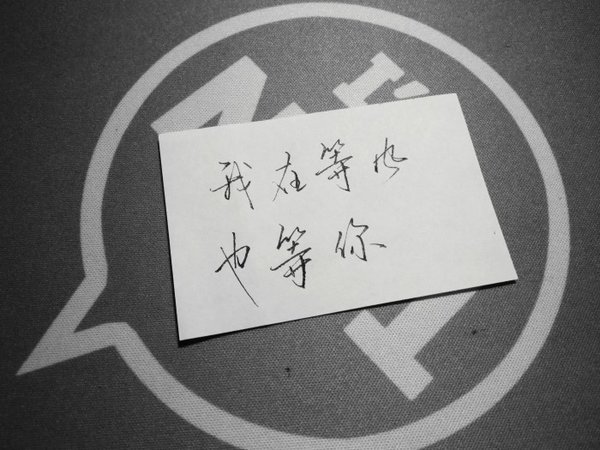 我在等风
也等你